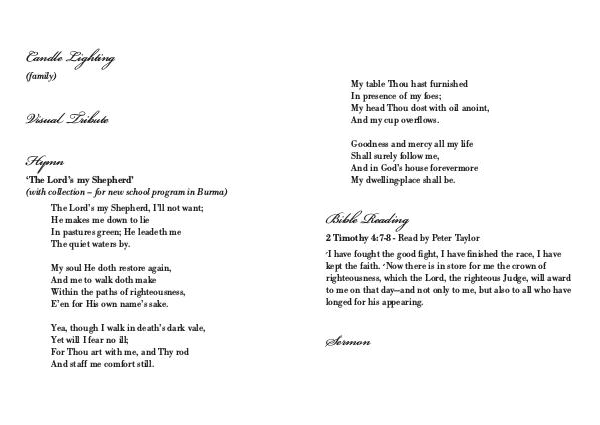 Candle Lighting
(family)
Visual Tribute
Hymn
'The Lord's my Shepherd'
(with collection – for new school program in Burma)
The Lord's my Shepherd, I'll not want;
He makes me down to lie
In pastures green; He leadeth me
The quiet waters by.
My soul He doth restore again,
And me to walk doth make
Within the paths of righteousness,
E'en for His own name's sake.
Yea, though I walk in death's dark vale,
Yet will I fear no ill;
For Thou art with me, and Thy rod
And staff me comfort still.
My table Thou hast furnished
In presence of my foes;
My head Thou dost with oil anoint,
And my cup overflows.
Goodness and mercy all my life
Shall surely follow me,
And in God's house forevermore
My dwelling-place shall be.
Bible Reading
2 Timothy 4:7-8 - Read by Peter Taylor
I have fought the good fight, I have finished the race, I have
kept the faith. Now there is in store for me the crown of
righteousness, which the Lord, the righteous Judge, will award
to me on that day—and not only to me, but also to all who have
longed for his appearing.
Sermon